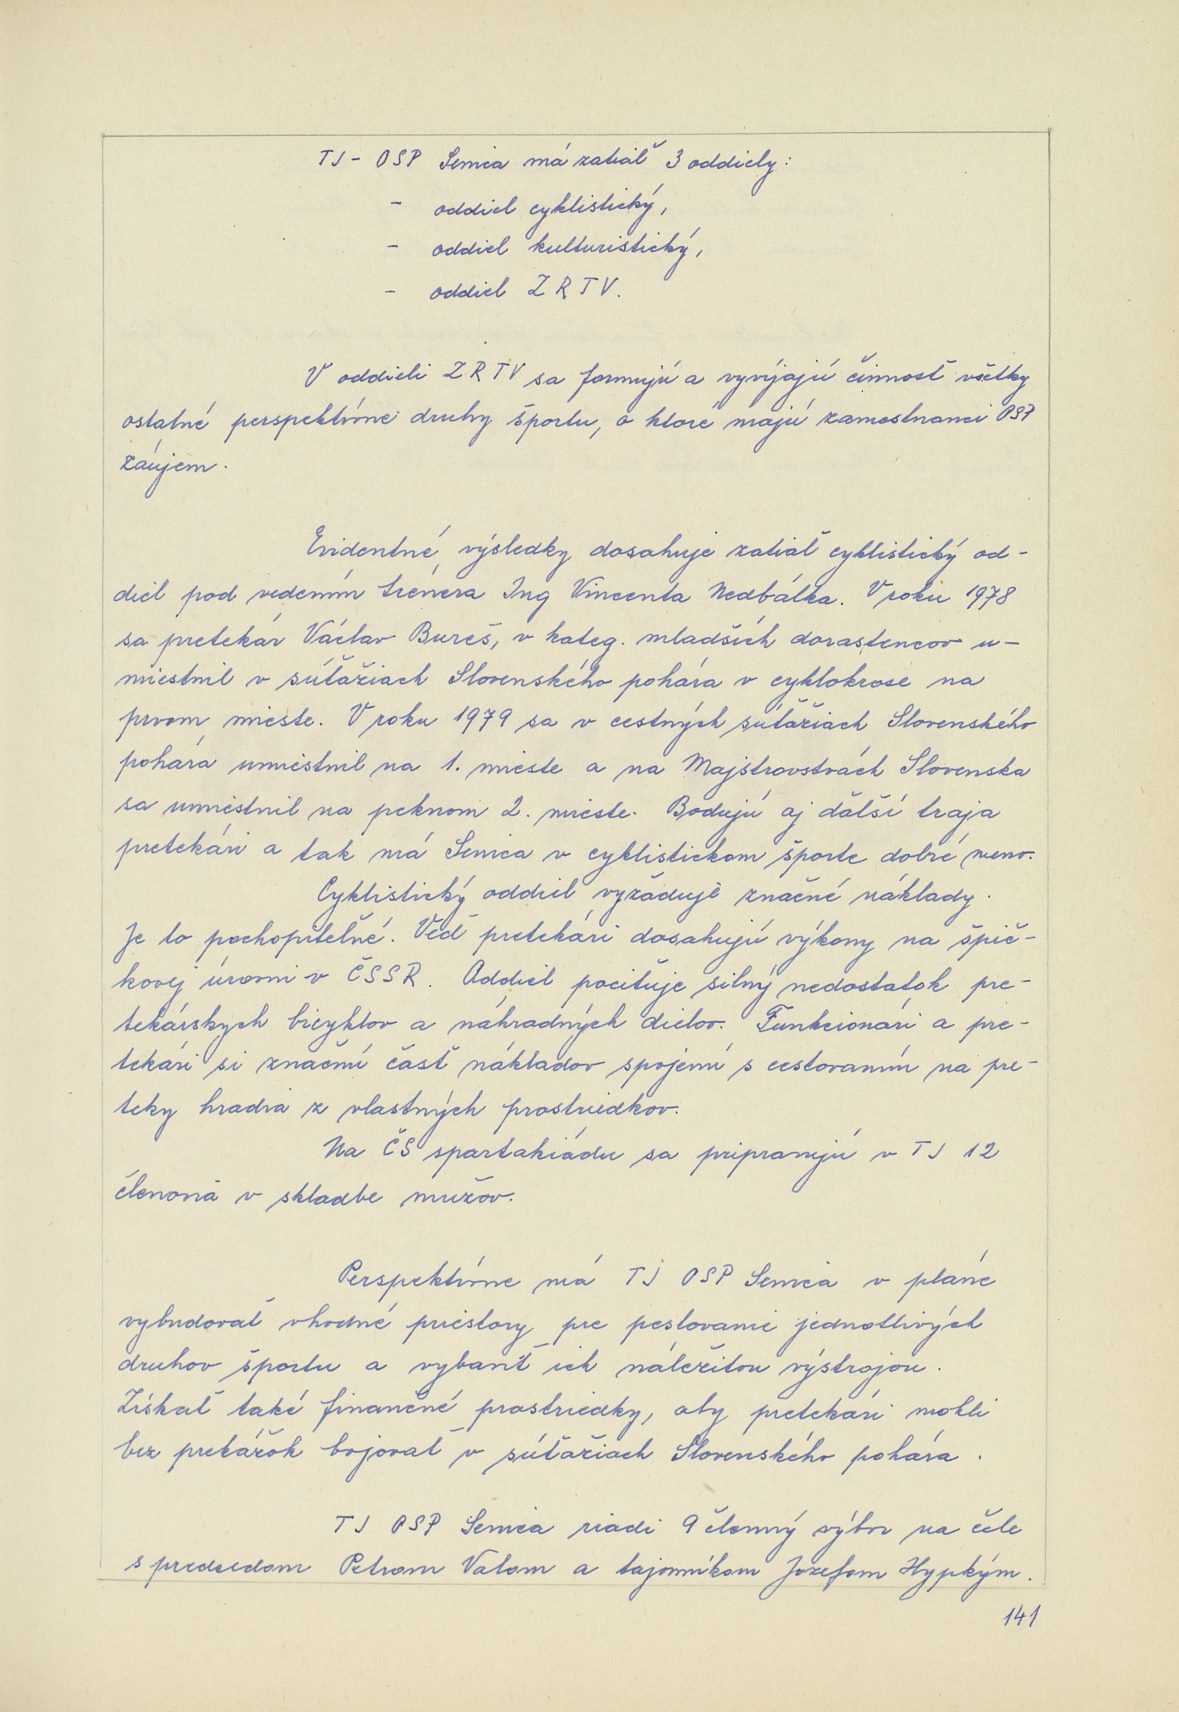 TJ - OSP Senica má zatiaľ 3 oddiely:
- oddiel cyklistický,
- oddiel kulturistický,
- oddiel ZRTV.
V oddieli ZRTV sa formujú a vyvíjajú činnosť všetky
ostatné perspektívne druhy športu, o ktoré majú zamestnanci OSP
záujem.
Evidentné výsledky dosahuje zatiaľ cyklistický od-
diel pod vedením trénera Ing Vincenta Nedbálka. V roku 1978
sa pretekár Václav Bureš, v kateg. mladších dorastencov u-
miestnil v súťažiach Slovenského pohára v cyklokrose na
prvom mieste. V roku 1979 sa v cestných súťažiach Slovenského
pohára umiestnil na 1. mieste a na Majstrovstvách Slovenska
sa umiestnil na peknom 2. mieste. Bodujú aj ďalší traja
pretekári a tak má Senica v cyklistickom športe dobré meno.
Cyklistický oddiel vyžaduje značné náklady.
Je to pochopiteľné. Veď pretekári dosahujú výkony na špič-
kovej úrovni v ČSSR. Oddiel pociťuje silný nedostatok pre-
tekárskych bicyklov a náhradných dielov. Funkcionári a pre-
tekári si značnú časť nákladov spojenú s cestovaním na pre-
teky hradia z vlastných prostriedkov.
Na ČS spartakiádu sa pripravujú v TJ 12
členovia v skladbe mužov.
Perspektívne má TJ OSP Senica v pláne
vybudovať vhodné priestory pre pestovanie jednotlivých
druhov športu a vybaviť ich náležitou výstrojou.
Získať také finančné prostriedky, aby pretekári mohli
bez prekážok bojovať v súťažiach Slovenského pohára.
TJ OSP Senica riadi 9 členný výbor na čele
s predsedom Petrom Valom a tajomníkom Jozefom Hypkým.
141